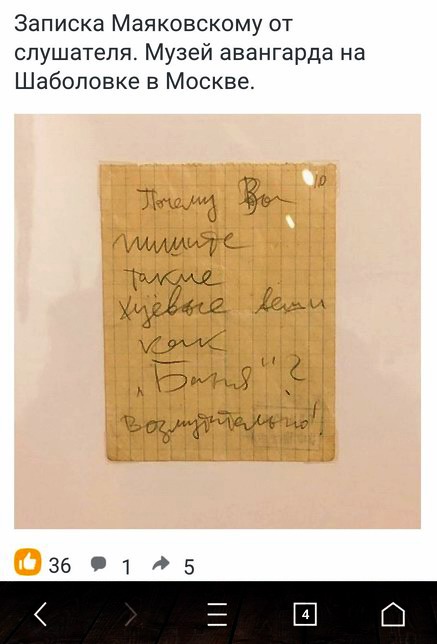 Записка Маяковскому от
слушателя. Музей авангарда на
Шаболовке в Москве.
10
Почему Вы
пишите
такие
хуёвые вещи
как
„Баня“?
Возмутительно!
36 1 5
4